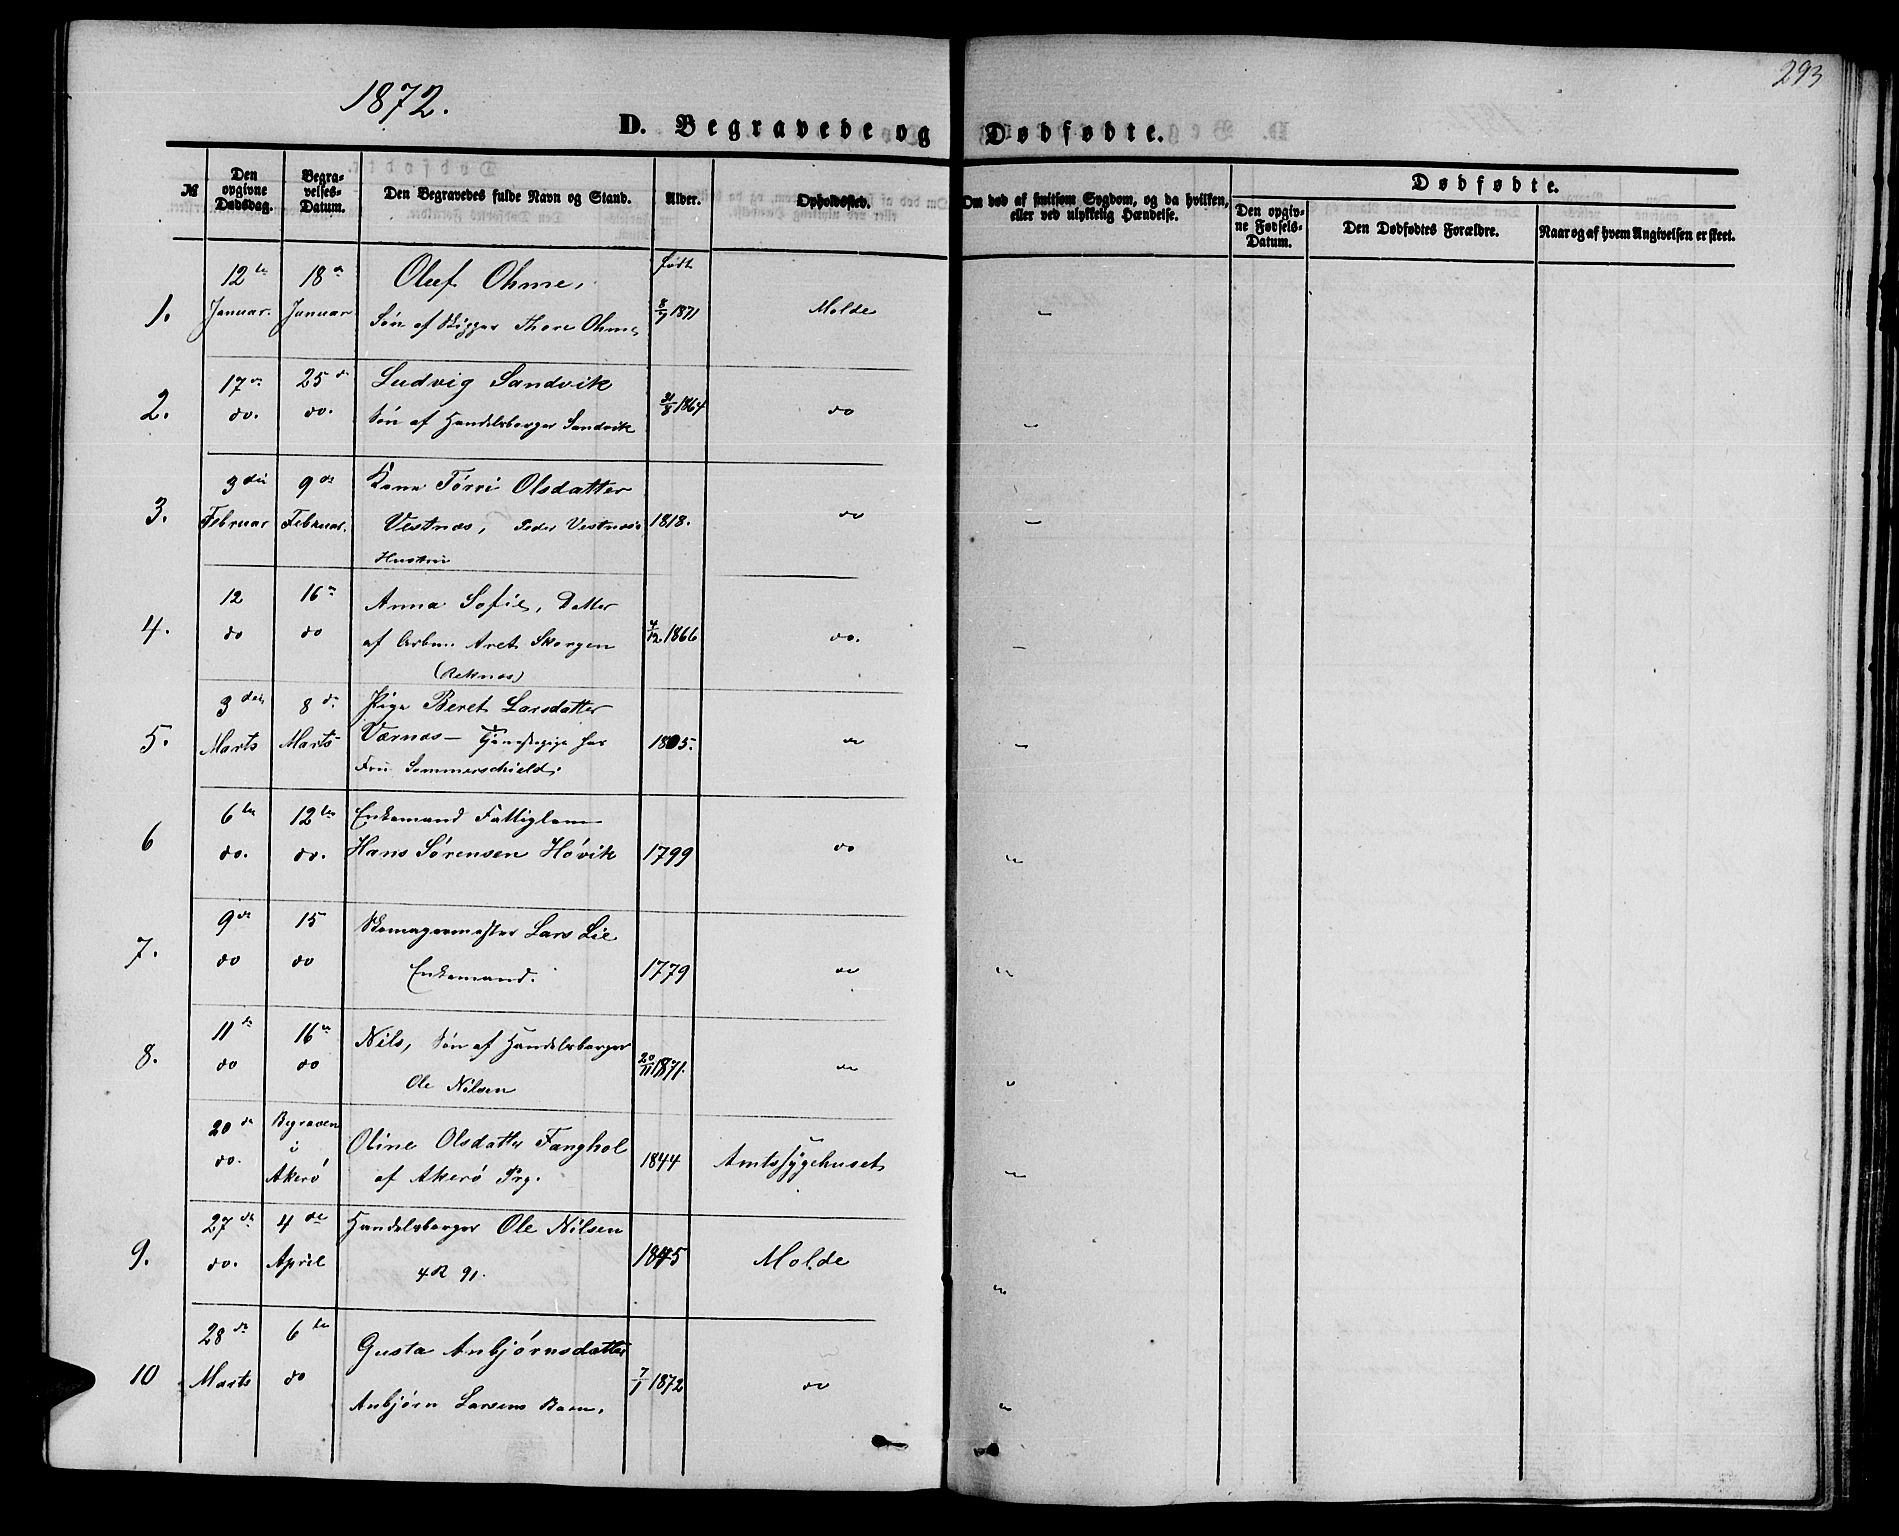 1872.
293
D. Begravede og Dødfødte.
№
Den opgivne Dødsdag.
Begravelses-Datum.
Den Begravedes fulde Navn og Stand.
Alder.
Opholdssted.
Om død af smitsom Sygdom, og da hvilken, eller ved ulykkelig Hændelse.
Dødfødte.
Den opgivne Fødsels-Datum.
Den Dødfødtes Forældre.
Naar og af hvem Angivelsen er skeet.
1.
12te Januar.
18de Januar
Oluf Ohme,
Søn af Skipper Thore Ohme
født
8/9 1871
Molde
2.
17de do.
25de do.
Ludvig Sandvik
Søn af Handelsborger Sandvik
31/8 1864
do
3.
3die Februar
9de Februar.
Kone Olsdatter
Vestnæs, Peder Vestnæs
Hustru
1818.
do
4.
12 do
16de do
Anna Sofie, Datter
af Arbm. Skorgen
(Reknæs)
4/12 1866
do.
5.
3die Marts
8de Marts
Pige Beret Larsdatter
Værnæs — Tjenestepige hos
Fru Sommerschield.
1805.
do
6
6te do.
12te do.
Enkemand Fattiglem
Hans Sørensen Høvik
1799
do
7.
9de do
15 do
Skomagermester Lars Lie
Enkemand.
1779
do
8.
11de do
16de do
Nils, Søn af Handelsborger
Ole Nilsen
20/11 1871.
do
20de do.
Begraven i Akerø
Oline Olsdatter Fanghol
af Akerø Prg.
1844
Amtssygehuset
9.
27de do.
4de April
Handelsborger Ole Nilsen
1845
Molde
10
28de Marts
6te do
Gusta Anbjørnsdatter
Anbjørn Larsens Barn.
7/1 1872
do